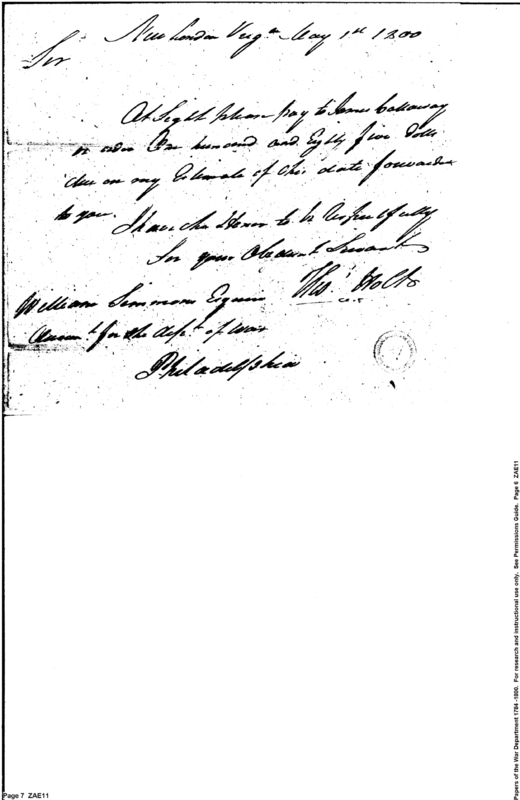 New London Virga. May 1st 1800
Sir
At Sight please pay to James Callaway
or order One hundred and Eighty five Dolls
due on my Estimate of this date forwarded
to you.
I have the Honor to be Respectfully
Sir your Obedient Servant
Thos. Holt
William Simmons Esquire
Accont. for the dept. of War
Philadelphia
Page 7 ZAE11
Papers of the War Department 1784-1800. For research and instructional use only. See Permissions Guide. Page 6 ZAE11